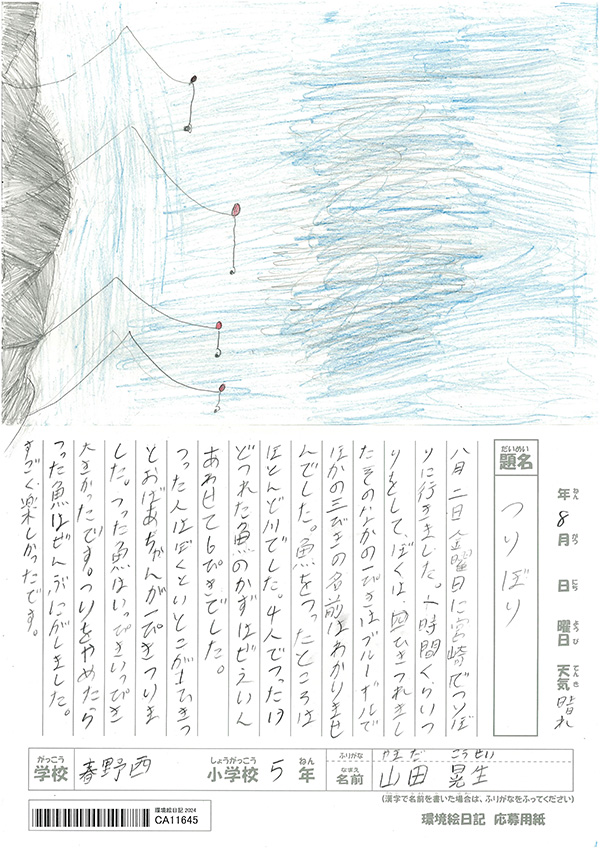 だいめい
題名
つりぼり
年 ねん
8 月 がつ
日 にち
曜日 ようび
天気 てんき 晴れ
八月二日金曜日に宮崎でつりぼ
りに行きました。一時間くらいつ
りをして、ぼくは、四ひきつれまし
たそのなかの一ぴきはブルーギルで
ほかの三びきの名前はわかりませ
んでした。魚をつったところは
ほとんど川でした。4人でつったけ
どつれた魚のかずはぜえいん
あわせて6ぴきでした。
つった人はぼくといとこが
とおばあちゃんが一ぴきつりま
した。つった魚はいっぴきいっぴき
大きかったです。つりをやめたら
つった魚はぜんぶにがしました。
すごく楽しかったです。
がっこう
学校 春野西
しょうがっこう
小学校 5 年 ねん
ふりがな やまだ こうせい
なまえ
名前 山田 晃生
(漢字で名前を書いた場合は、ふりがなをふってください)
環境絵日記 2024
CA11645
環境絵日記 応募用紙